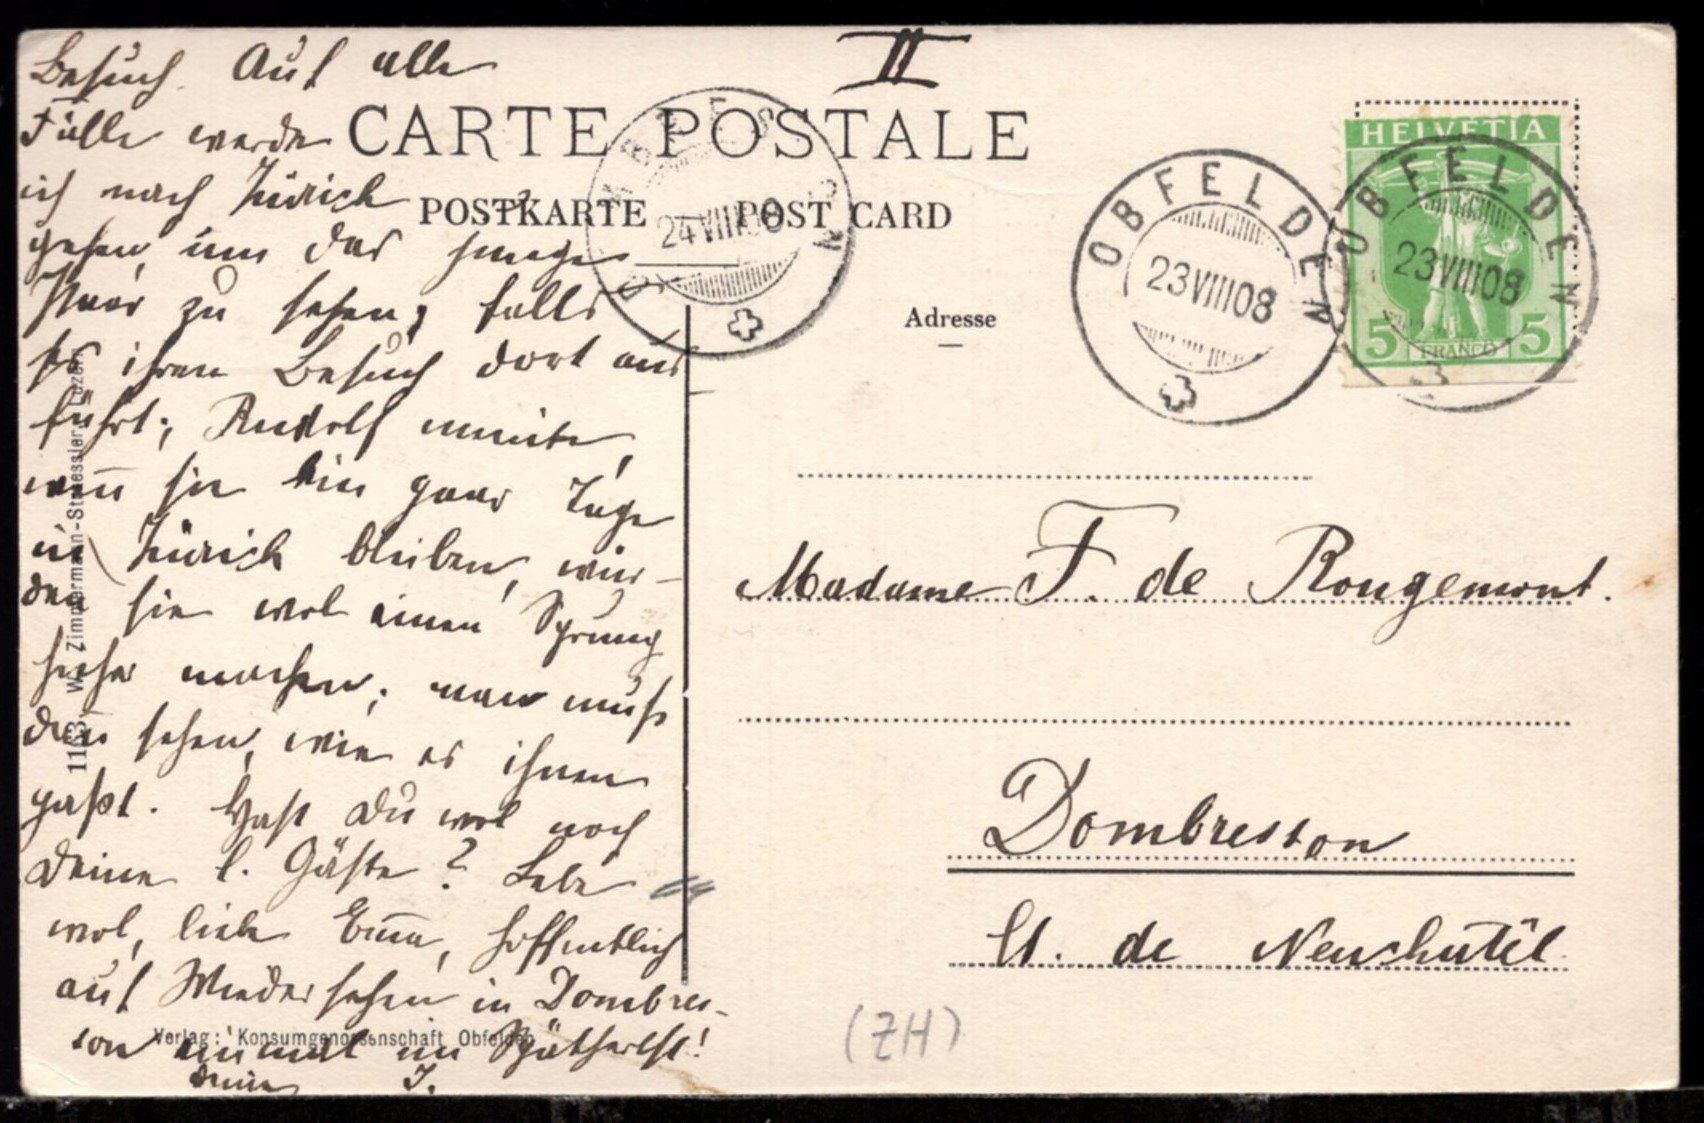 Besuch. Auf alle
Fälle werde
ich nach Zürich
gehen, um das junge
Paar zu sehen, falls
es ihren Besuch dort aus
führt; Rudolf meinte,
wenn sie ein paar Tage
in Zürich bleiben, wür-
den sie wol einen Sprung
hieher machen; man muß
dann sehen, wie es ihnen
paßt. Hast Du wol noch
Deine l. Gäste? Lebe
wol, liebe Emma, hoffentlich
auf Wiedersehen in Dombres-
son einmal im Spätherbst!
Deine J.
II
CARTE POSTALE
POSTKARTE POST CARD
Adresse
DOMBRESSON
24 VIII 08
OBFELDEN
23 VIII 08
OBFELDEN
23 VIII 08
HELVETIA
5 FRANCO 5
Madame F. de Rougemont.
Dombresson
Ct. de Neuchâtel
(ZH)
Verlag: Konsumgenossenschaft Obfelden
1163